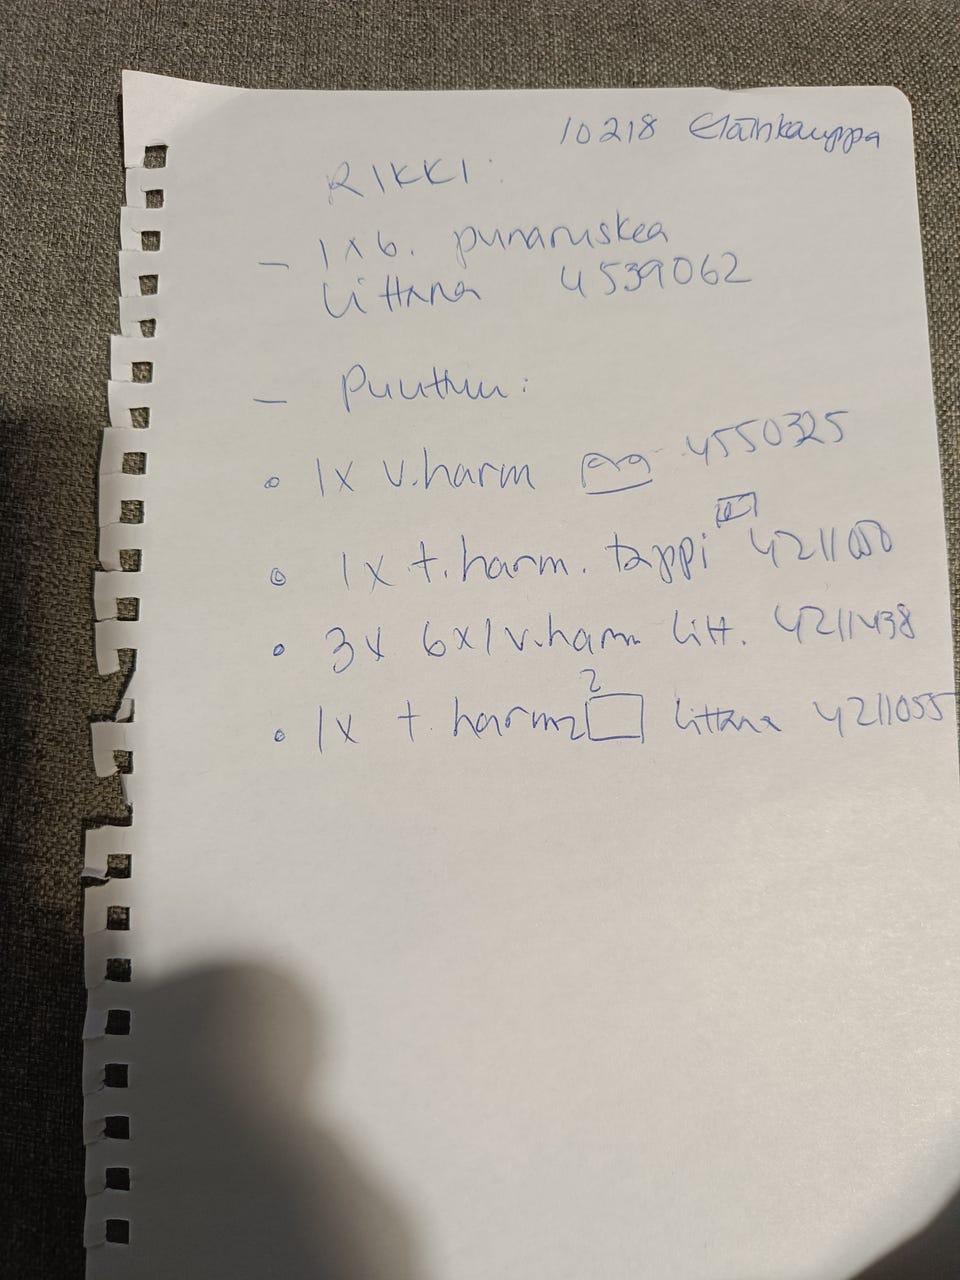 10218 Eläinkauppa
RIKKI:
- 1x6. punaruskea
littana 4539062
- Puuttuu:
• 1x v.harm 4550325
• 1x t.harm. tappi 4211050
• 3x 6x1 v.harm litt. 4211438
2
• 1x t.harm 2 littana 4211055